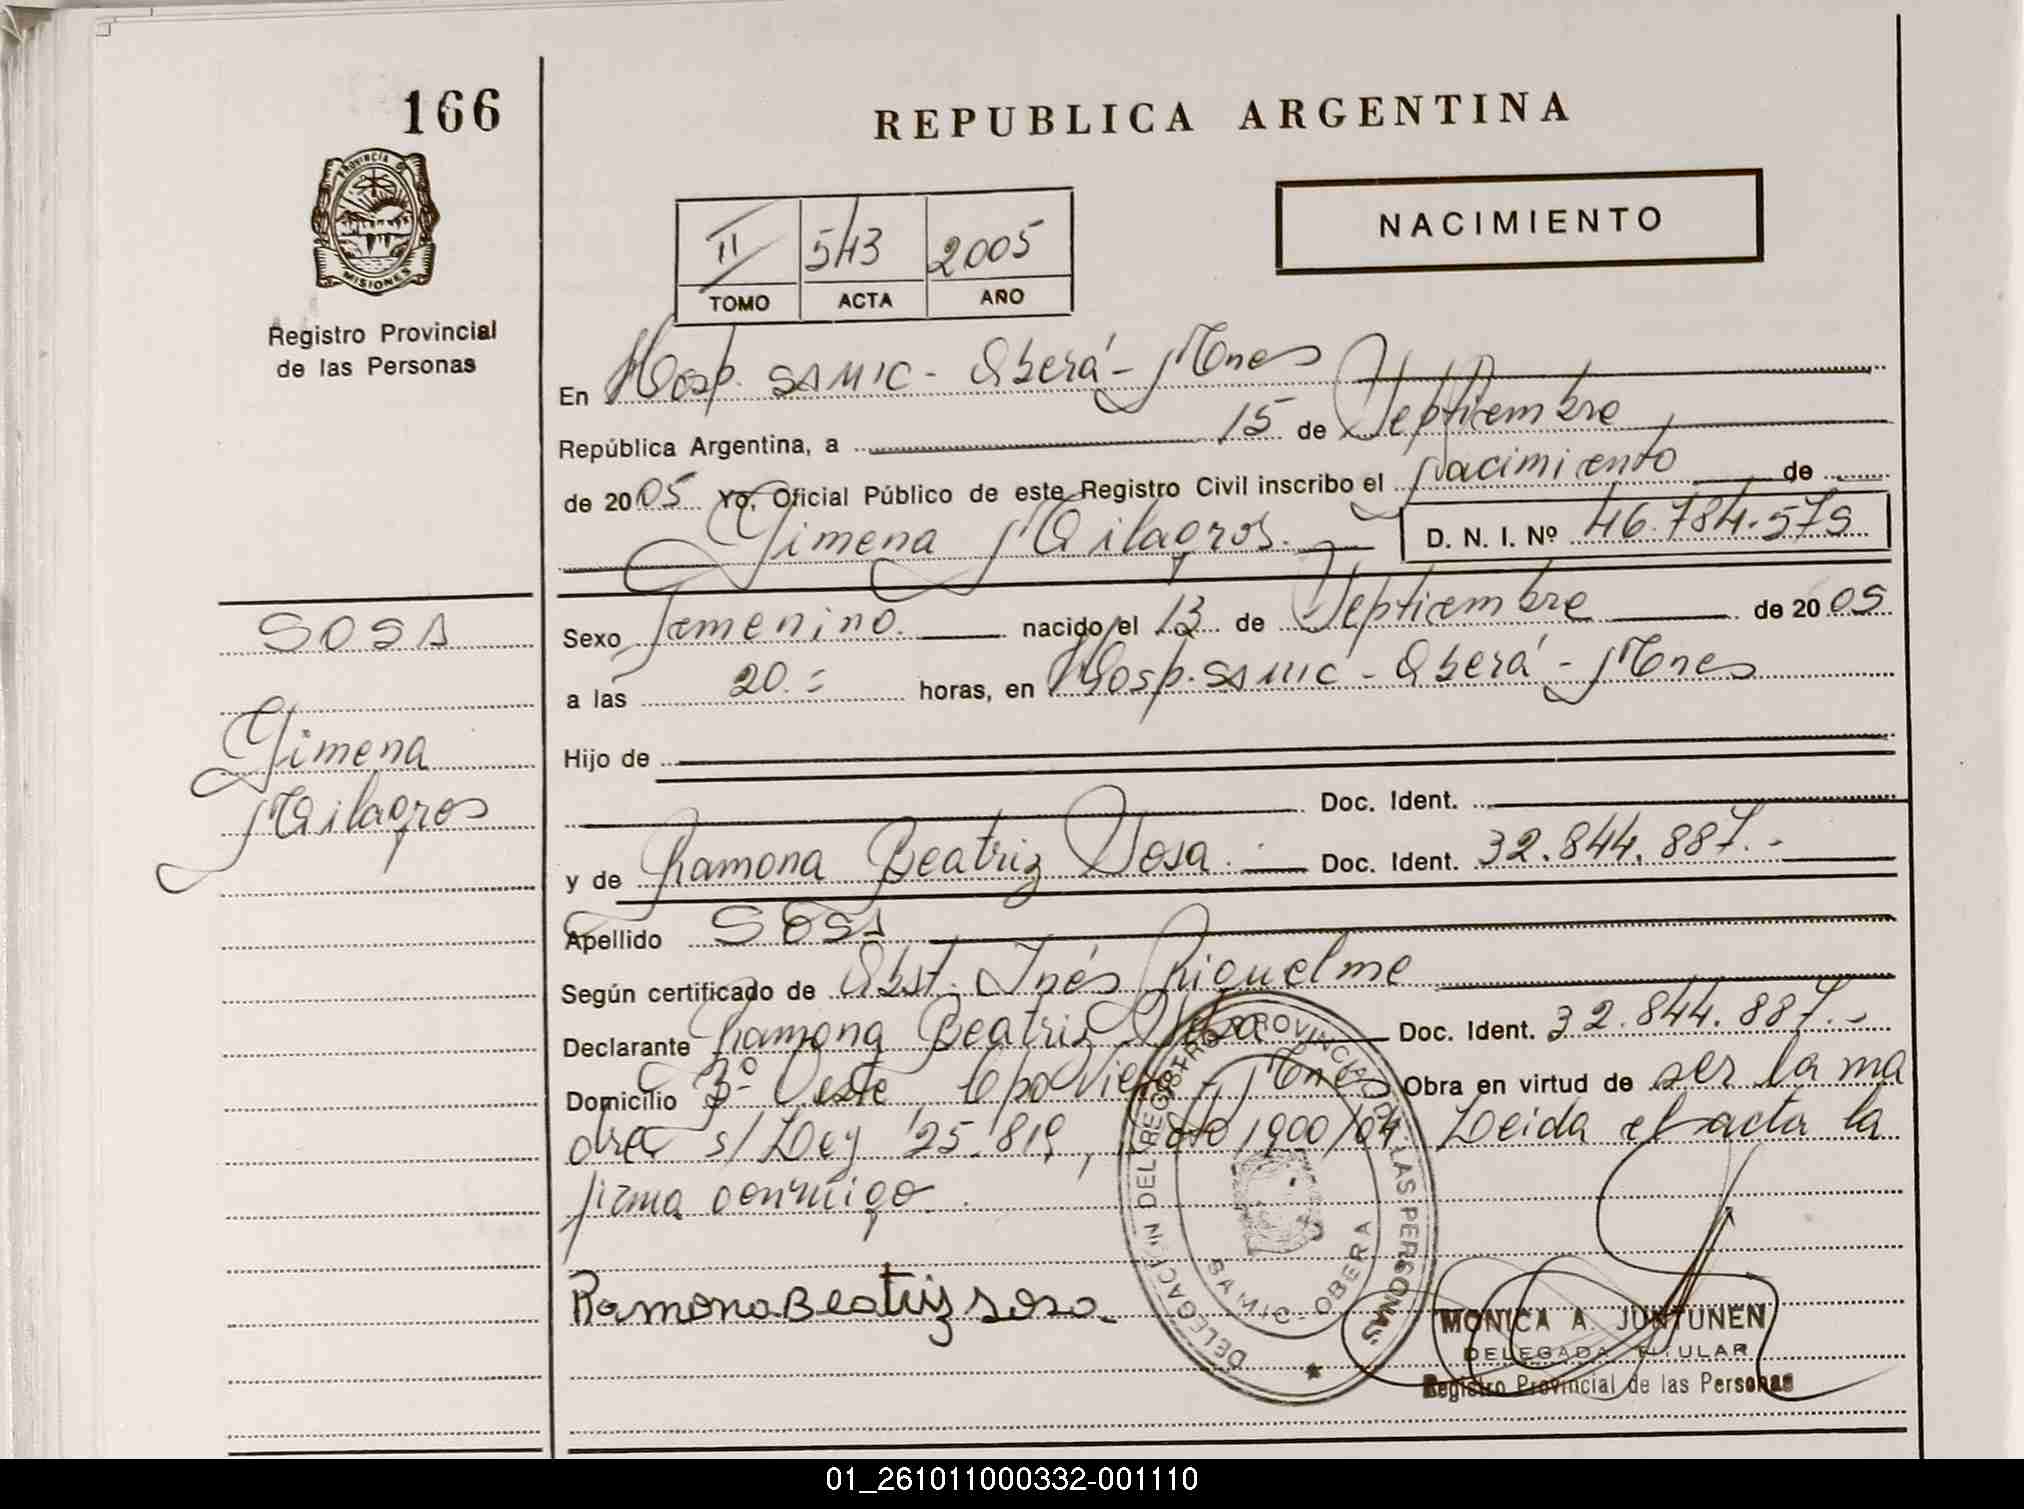 166
REPUBLICA ARGENTINA
PROVINCIA DE
MISIONES
Registro Provincial
de las Personas
NACIMIENTO
II 543 2005
TOMO ACTA AÑO
En Hosp. SAMIC - Oberá - Mnes
República Argentina, a 15 de Septiembre
de 2005 Yo, Oficial Público de este Registro Civil inscribo el Nacimiento de
Gimena Milagros.
D. N. I. Nº 46.784.579
SOSA
Gimena
Milagros
Sexo Femenino. nacido el 13 de Septiembre de 2005
a las 20.= horas, en Hosp. SAMIC - Oberá - Mnes
Hijo de
Doc. Ident.
y de Ramona Beatriz Sosa.- Doc. Ident. 32.844.887.-
Apellido SOSA
Según certificado de Obst. Inés Riquelme
Declarante Ramona Beatriz Sosa Doc. Ident. 32.844.887.-
Domicilio 3º Oeste Cpo Viera Mnes Obra en virtud de ser la ma
dre s/ Ley 25.819, dto 1900/04 Leida el acta la
firma conmigo.
Ramona Beatriz sosa.
DELEGACION DEL REGISTRO PROVINCIAL DE LAS PERSONAS
SAMIC - OBERA
MONICA A. JUNTUNEN
DELEGADA TITULAR
Registro Provincial de las Personas
01_261011000332-001110